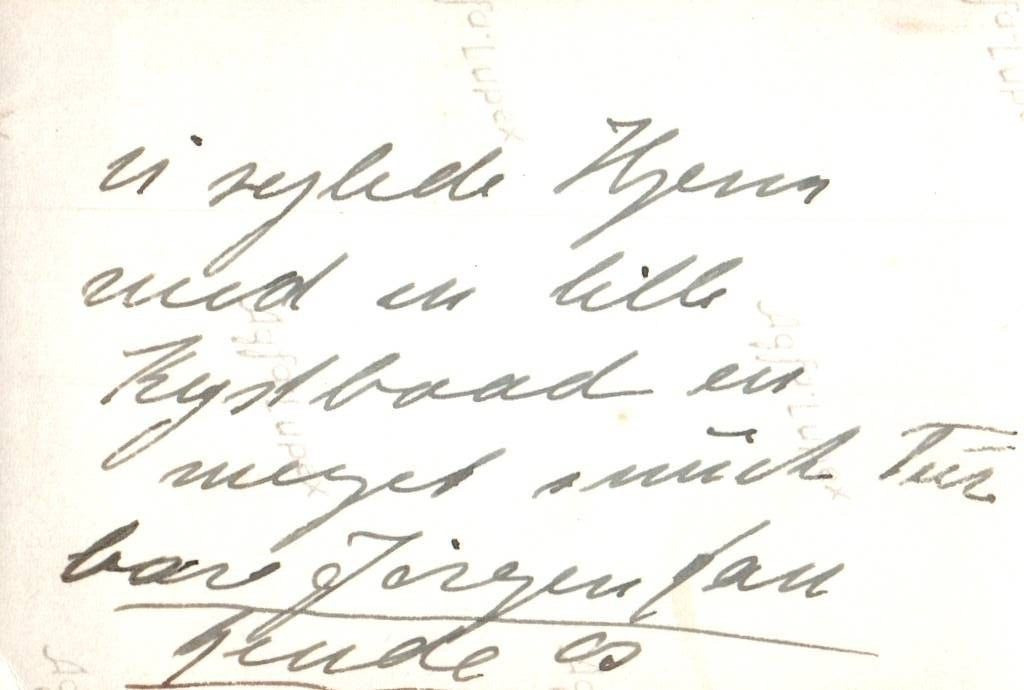 vi sejlede Hjem
med en lille
Kystbaad en
meget smuck Tur
bare Jörgen kan
finde os